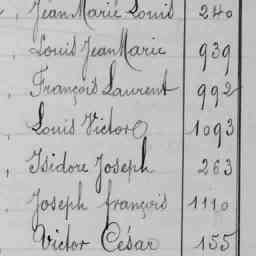 Jean Marie Louis 240
Louis Jean Marie 939
François Laurent 992
Louis Victor 1093
Isidore Joseph 263
Joseph françois 1110
Victor César 155